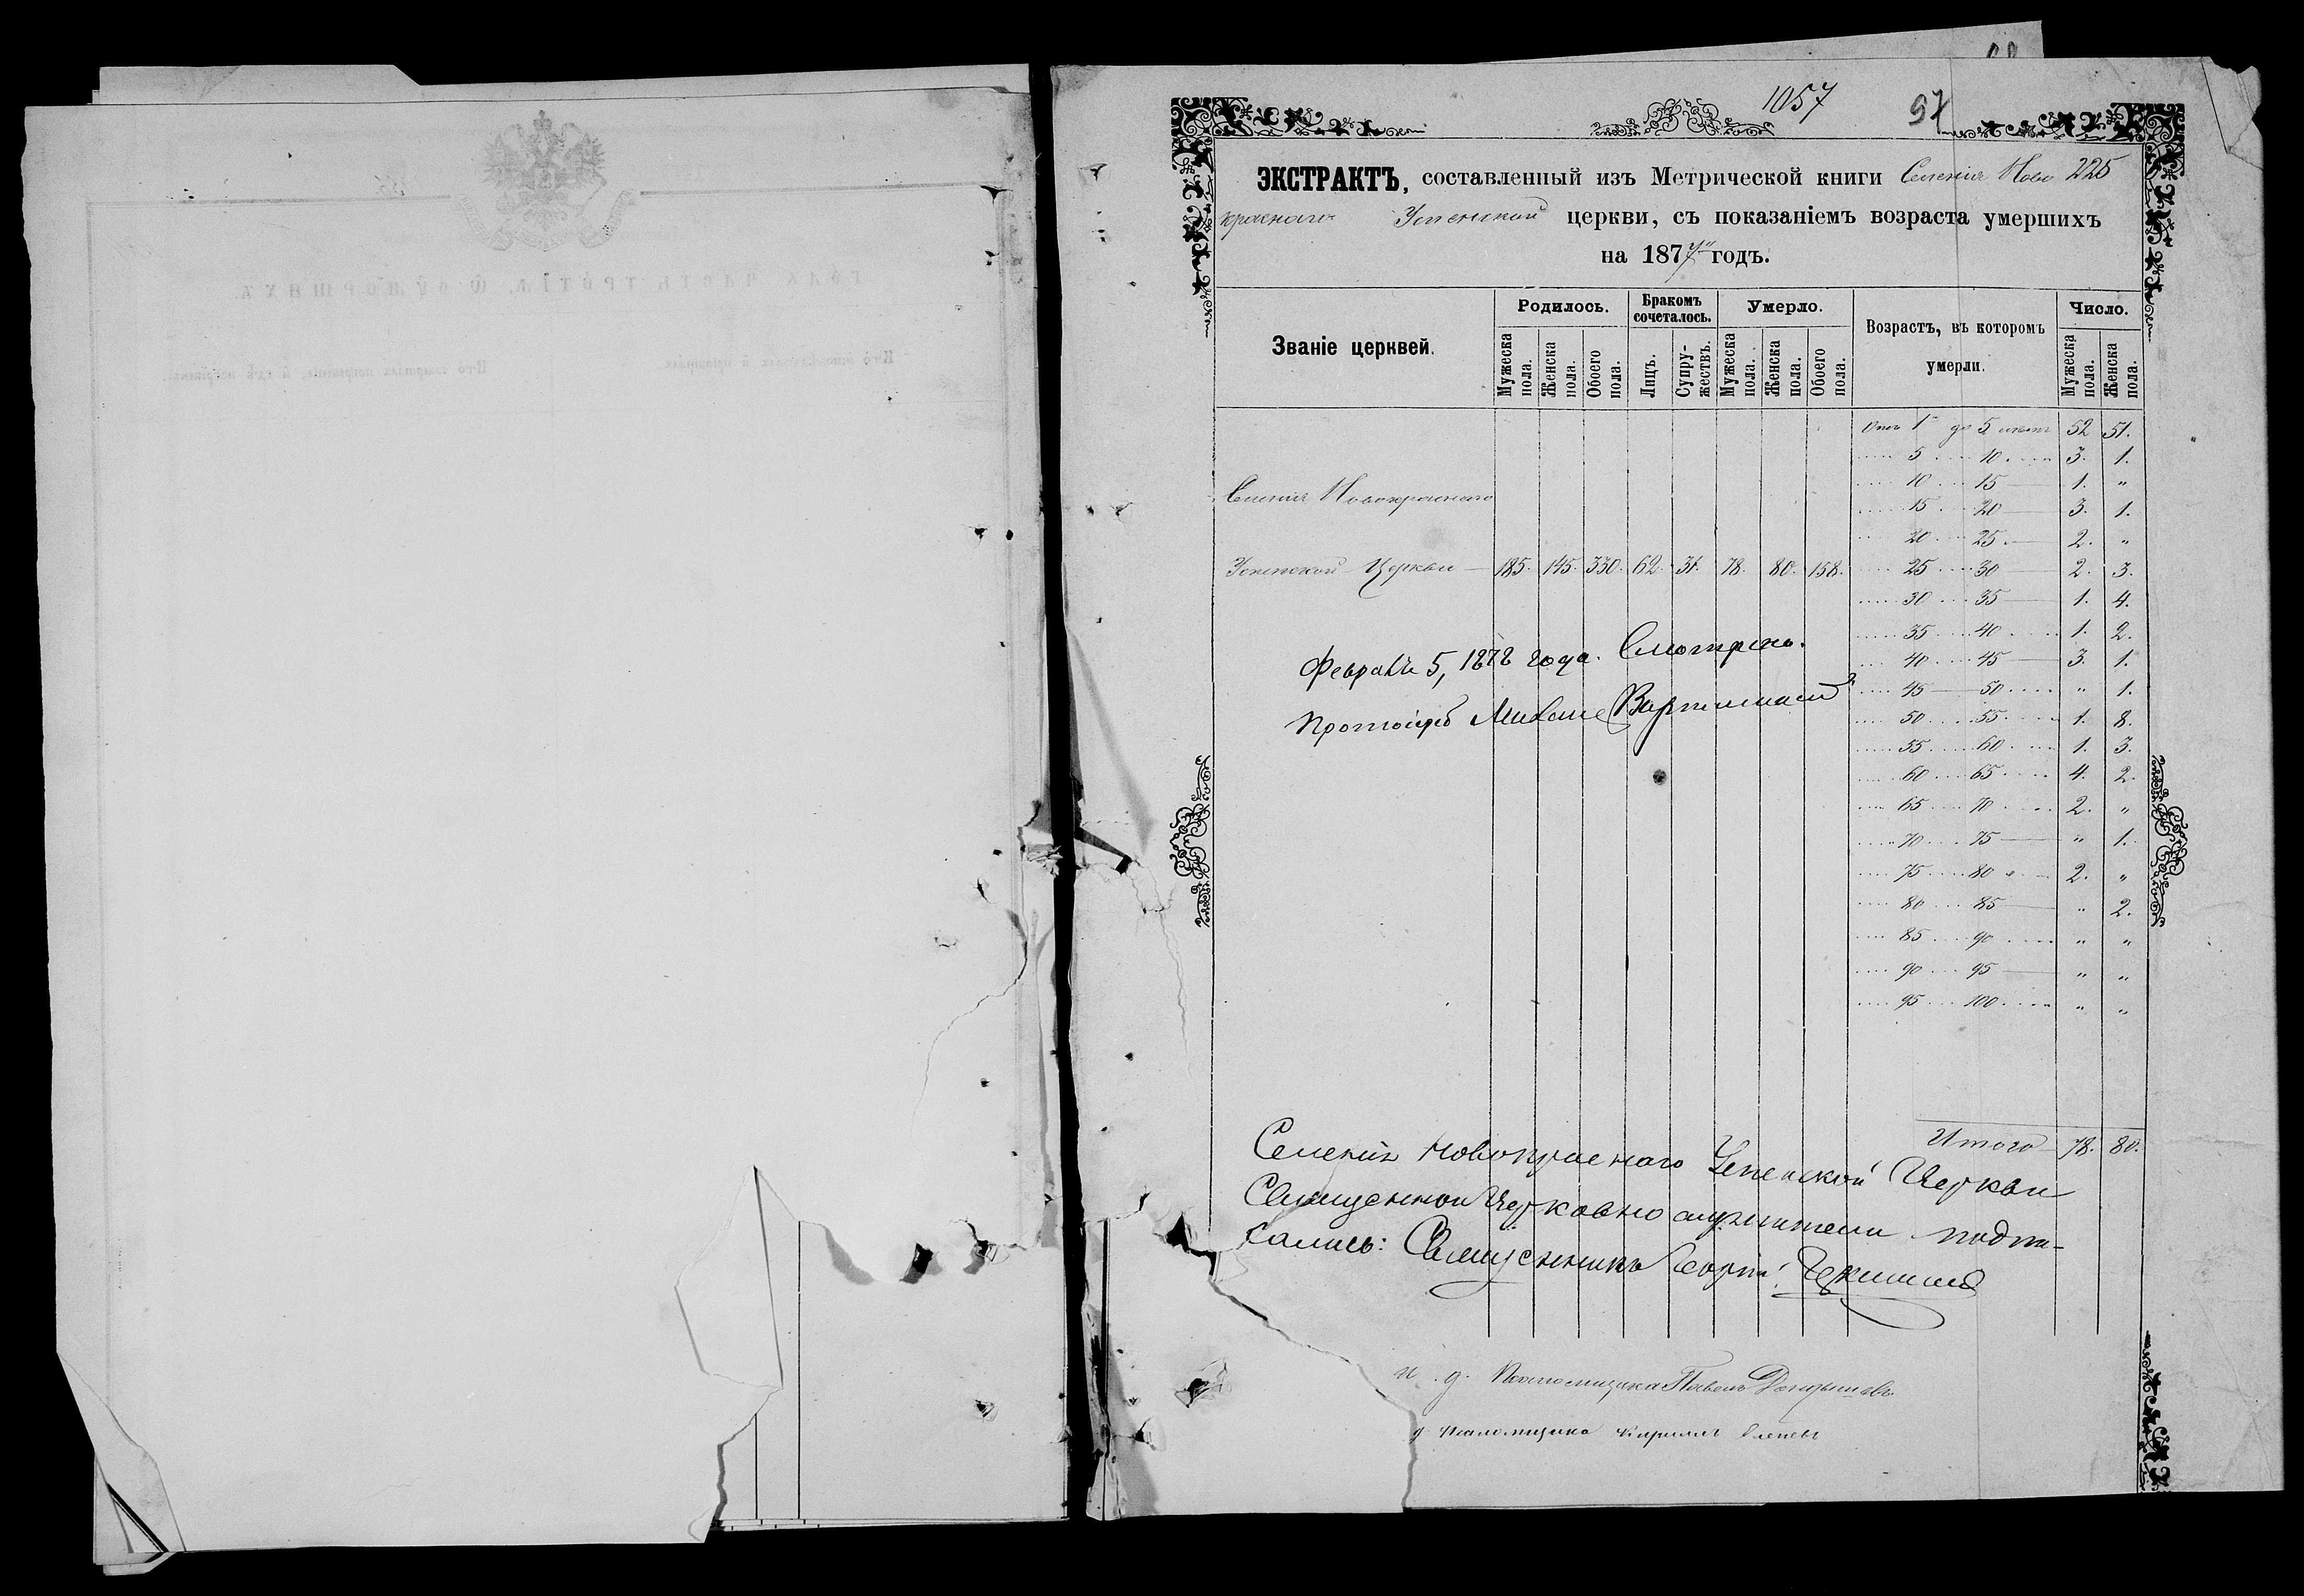 1057
97
ЭКСТРАКТЪ, составленный изъ Метрической книги Селенія Ново 225
краснаго Успенской церкви, съ показаніемъ возраста умершихъ
на 1877й годъ.
Званіе церквей.
Родилось.
Бракомъ сочеталось.
Умерло.
Возрастъ, въ которомъ умерли.
Число.
Мужеска пола.
Женска пола.
Обоего пола.
Лицъ.
Супружествъ.
Мужеска пола.
Женска пола.
Обоего пола.
Мужеска пола.
Женска пола.
Отъ 1 до 5 лѣтъ 52 51.
5 10 3. 1.
Селенія Новокраснаго 10 15 1. "
15 20 3. 1.
20 25 2. "
Успенской Церкви — 185. 145. 330. 62. 31. 78. 80. 158. 25 30 2. 3.
30 35 1. 4.
35 40 1. 2.
40 45 3. 1.
45 50 " 1.
50 55 1. 8.
55 60 1. 3.
60 65 4. 2.
65 70 2. "
70 75 " 1.
75 80 2. "
80 85 " 2.
85 90 " "
90 95 " "
95 100 " "
Февраля 5, 1878 года. Смотрѣлъ.
Протоіерей
Итого 78. 80.
Селенія Новокраснаго Успенской Церкви
Священно Церковно служители подпи-
сались: Священникъ Георгій
и. д. Псаломщика Павелъ
д Псаломщика Кириллъ